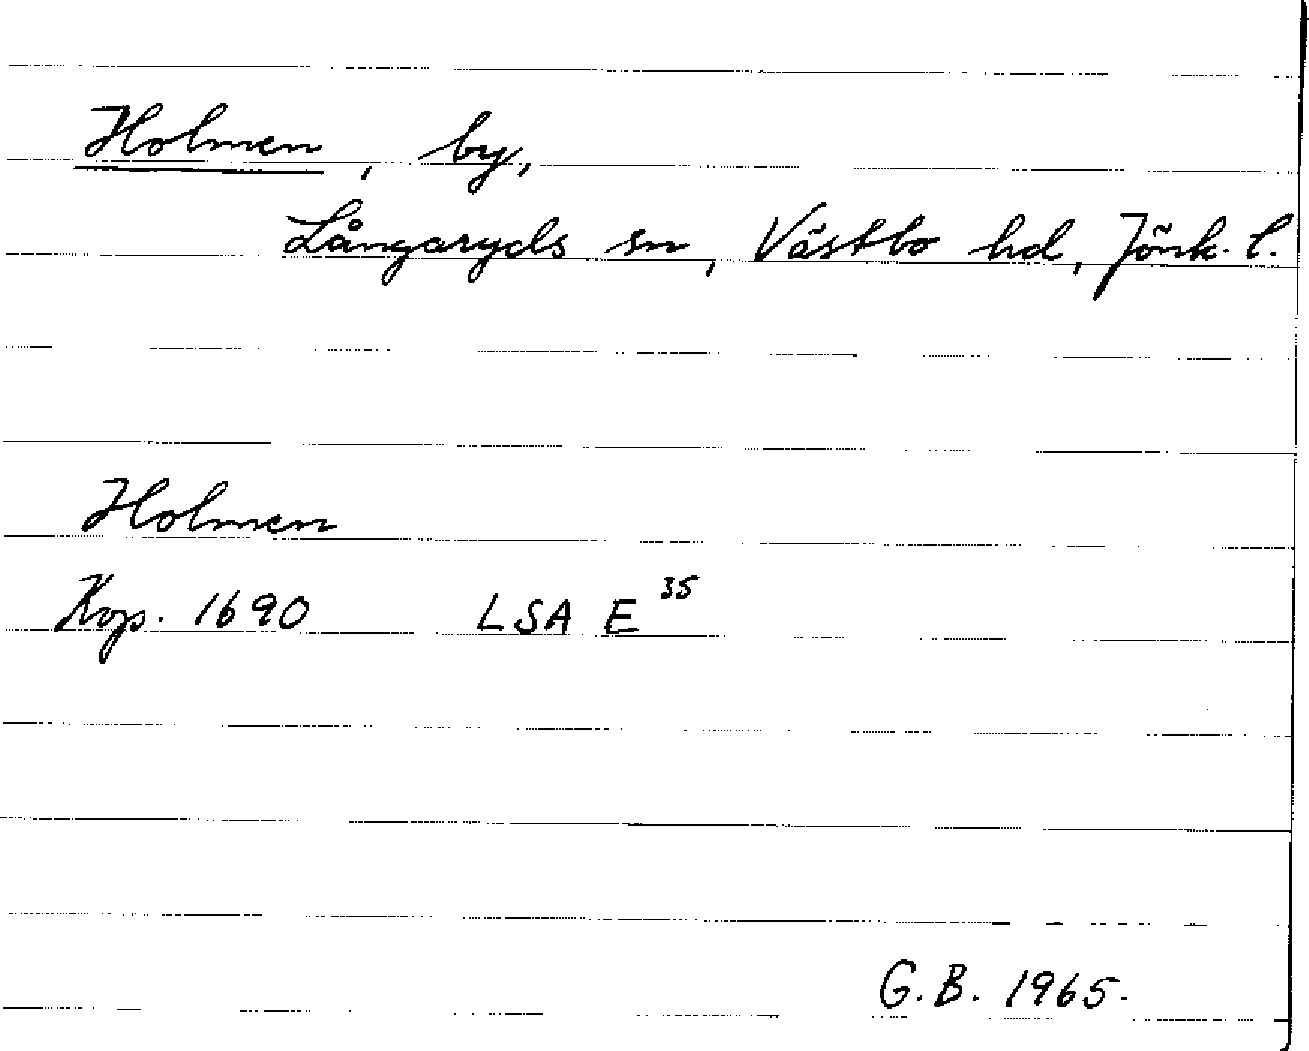 Holmen, by,
Långaryds sn, Västbo hd, Jönk. l.
Holmen
Kop. 1690 LSA E 35
G.B. 1965.